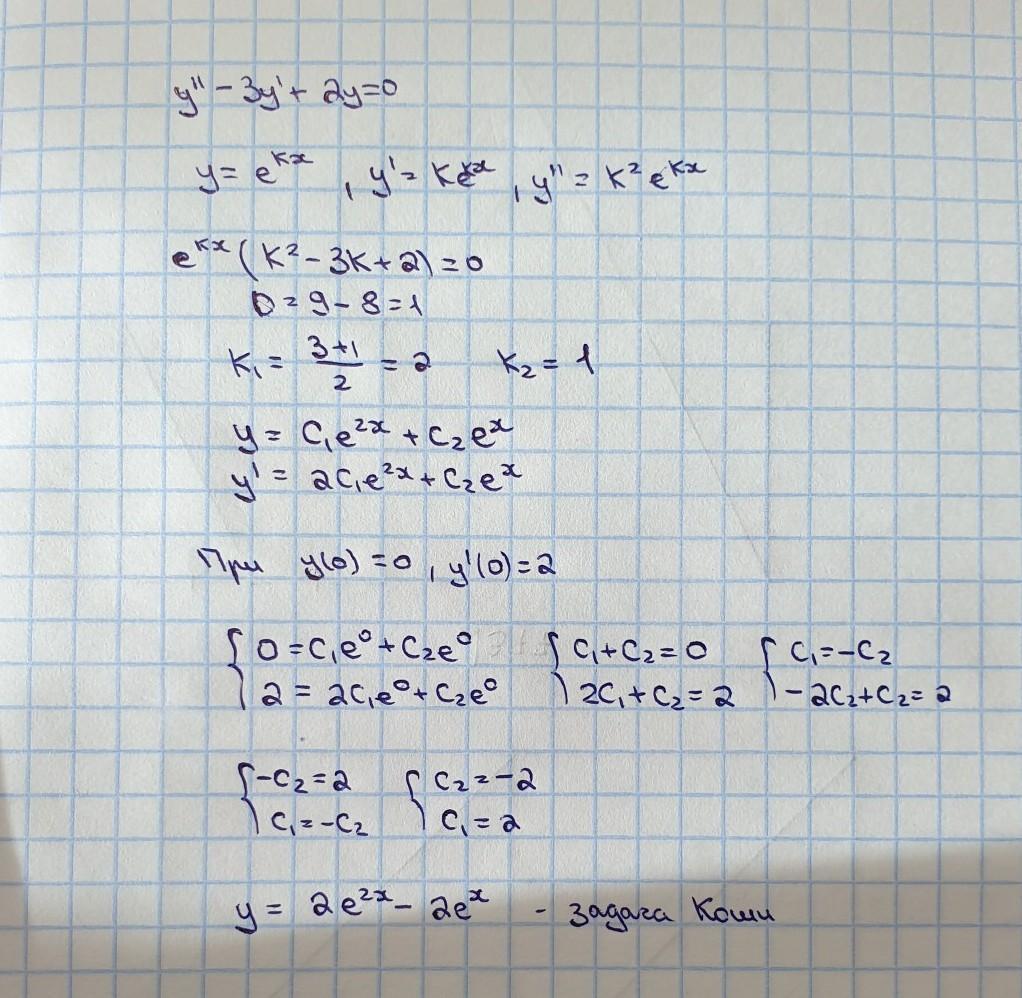 y'' - 3y' + 2y = 0
y = e^{kx}, y' = ke^{kx}, y'' = k² e^{kx}
e^{kx}(k² - 3k + 2) = 0
D = 9 - 8 = 1
k₁ = \frac{3+1}{2} = 2 k₂ = 1
y = C₁e^{2x} + C₂e^{x}
y' = 2C₁e^{2x} + C₂e^{x}
При y(0) = 0, y'(0) = 2
{ 0 = C₁e⁰ + C₂e⁰ { C₁ + C₂ = 0 { C₁ = -C₂
2 = 2C₁e⁰ + C₂e⁰ 2C₁ + C₂ = 2 -2C₂ + C₂ = 2
{ -C₂ = 2 { C₂ = -2
C₁ = -C₂ C₁ = 2
y = 2e^{2x} - 2e^{x} - задача Коши